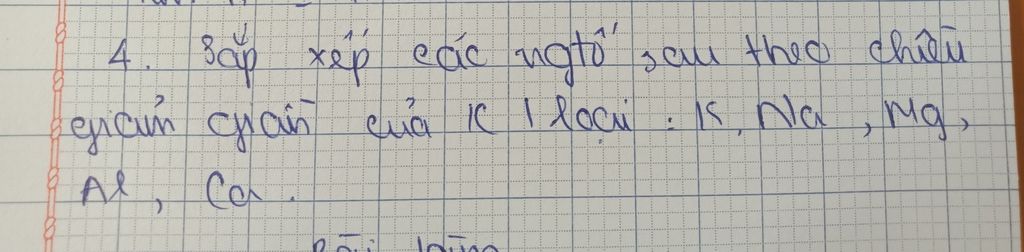 4. Sắp xếp các ngtố sau theo chiều
giảm giần của K loại : K, Na, Mg,
Al, Ca.